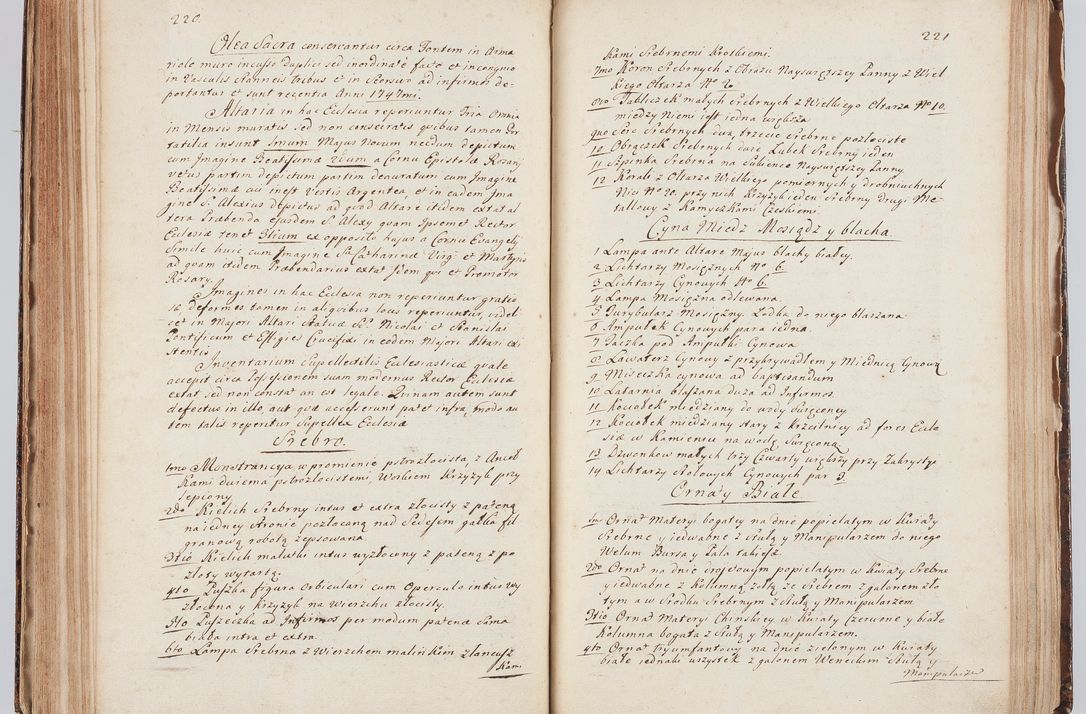 220.
Olea Sacra conservantur circa Fontem in Arma
riolo muro incuso duplici sed inordinatè facto et incongruo
in Vasculis Stanneis tribus et in Seorsivo ad infirmos de-
portantur et sunt recentia Anni 1747mi.
Altaria in hac Ecclesia reperiuntur Tria Omnia
in Mensis muratis sed non consecratis quibus tamen Por
tatilia insunt 1mum Majus Novum necdum depictum
cum Imagine Beatissimæ 2dum a Cornu Epistolæ Rosarij
vetus partim depictum partim deauratum cum Imagine
Beatissimæ cui inest Vestis Argentea, et in eadem Ima
gine S. Alexius depictus ad quod Altare itidem extat al
tera Præbenda ejusdem S. Alexy quam Ipsemet Rector
Ecclesiæ tenet 3tium ex opposito hujus a Cornu Evangelij
Simile huic cum Imagine Sæ Catharinæ Virgi et Martyris
ad quam itidem Præbendarius extat idem qui et Promotor
Rosary.
Imagines in hac Ecclesia non reperiuntur gratio
sæ deformes tamen in aliquibus locis reperiuntur, videl-
icet in Majori Altari Statuæ SS. Nicolai et Stanislai
Pontificum et Effigies Crucifixi in eodem Majori Altari exi
stentis
Inventarium Supellectilis Ecclesiasticæ quale
accepit circa Possessionem suam modernus Rector Ecclesiæ
extat sed non constat an est legale. Quinam autem sunt
defectus in illo, aut quæ accesserunt patet infra modo au
tem talis reperitur Supellex Ecclesiæ
Srebro.
1mo Monstrancyia w promienie pstrozłocista, z Anioł
kami dwiema pstrozłocistemi, Workiem Krzyżyk przy
lepiony
2do Kielich Srebrny intus et extra złocisty z pateną
na iedney stronie pozłacaną nad Sedesem gałka fil
granową robotą zepsowana
3tio Kielich maluśki intus wyzłocony z pateną z po
złoty wytartą
4to Puszka figura Orbiculari cum Operculo intus wy
złocona y krzyżyk na wierzchu złocisty.
5to Puszeczka ad Infirmos per modum patenæ Sima
biała intra et extra.
6to Lampa Srebrna z Wierzchem malińkim złańcusz
kami
221
kami Srebrnemi Krotkiemi.
7mo Koron Srebrnych z Obrazu Nayswiętszey Panny z Wiel
kiego Ołtarza No 2.
8vo Tabliczek małych Srebrnych z Wielkiego Ołtarza No 10.
między Niemi iest iedna większa
9no Serc Srebrnych dwa, trzecie srebrne pozłociste
10 Obrączek Srebrnych dwie Ząbek Srebrny ieden
11 Szpinka Srebrna na Sukience Nayswiętszey Panny
12 Korali z Ołtarza Wielkiego pomiernych y drobniuchnych
Nici No 20. przy nich Krzyżyk ieden Srebrny drugi Me-
tallowy z Kamyczkami Czeskiemi
Cyna Miedz Mosiądz y blacha.
1 Lampa ante Altare Majus blachy białey.
2 Lichtarzy Mosiężnych No 6.
3 Lichtarzy Cynowych No 6.
4 Lampa Mosiężna odlewana.
5 Turybularz Mosiężny. Łodka do niego blaszana
6 Ampułek Cynowych para iedna.
7 Taczka pod Ampułki Cynowa
8 Lawaterz Cynowy z przykrywadłem y Miednicą Cynową
9 Miseczka cynowa ad baptisandum
10 Latarnia blaszana duża ad Infirmos.
11 Kociołek miedziany do wody Swięconey.
12 Kociołek miedziany stary z krzcilnicy ad fores Eccle
siæ w Kamieniu na wodę Swięconą
13 Dzwonkow małych trzy Czwarty większy przy Zakrystyi
14 Lichtarzy Stołowych Cynowych par 3.
Ornaty Białe.
1mo Ornat Materyi bogatey na dnie popielatym w kwiaty
Srebrne y iedwabne z Stułą y Manipularzem do niego
Welum Bursa y Palla takież.
2do Ornat na dnie drojetowym popielatym w kwiaty Srebrne
y iedwabne z Kollumną żołtą ze Srebrem z galonem zło
tym a w Srodku Srebrnym z Stułą y Manipularzem
3tio Ornat Materyi Chinskiey w kwiaty czerwone y białe
Kolumna bogata z Stułą y Manipularzem.
4to Ornat tryumfantowy na dnie zielonym w kwiaty
białe iednaki wszystek z galonem Weneckim Stułą y
Manipularzem